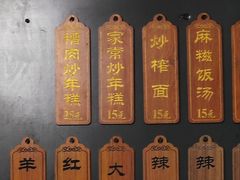 糟肉炒年糕
25元
家常炒年糕
15元
炒榨面
15元
麻糍饭汤
15元
羊
红
大
辣
辣